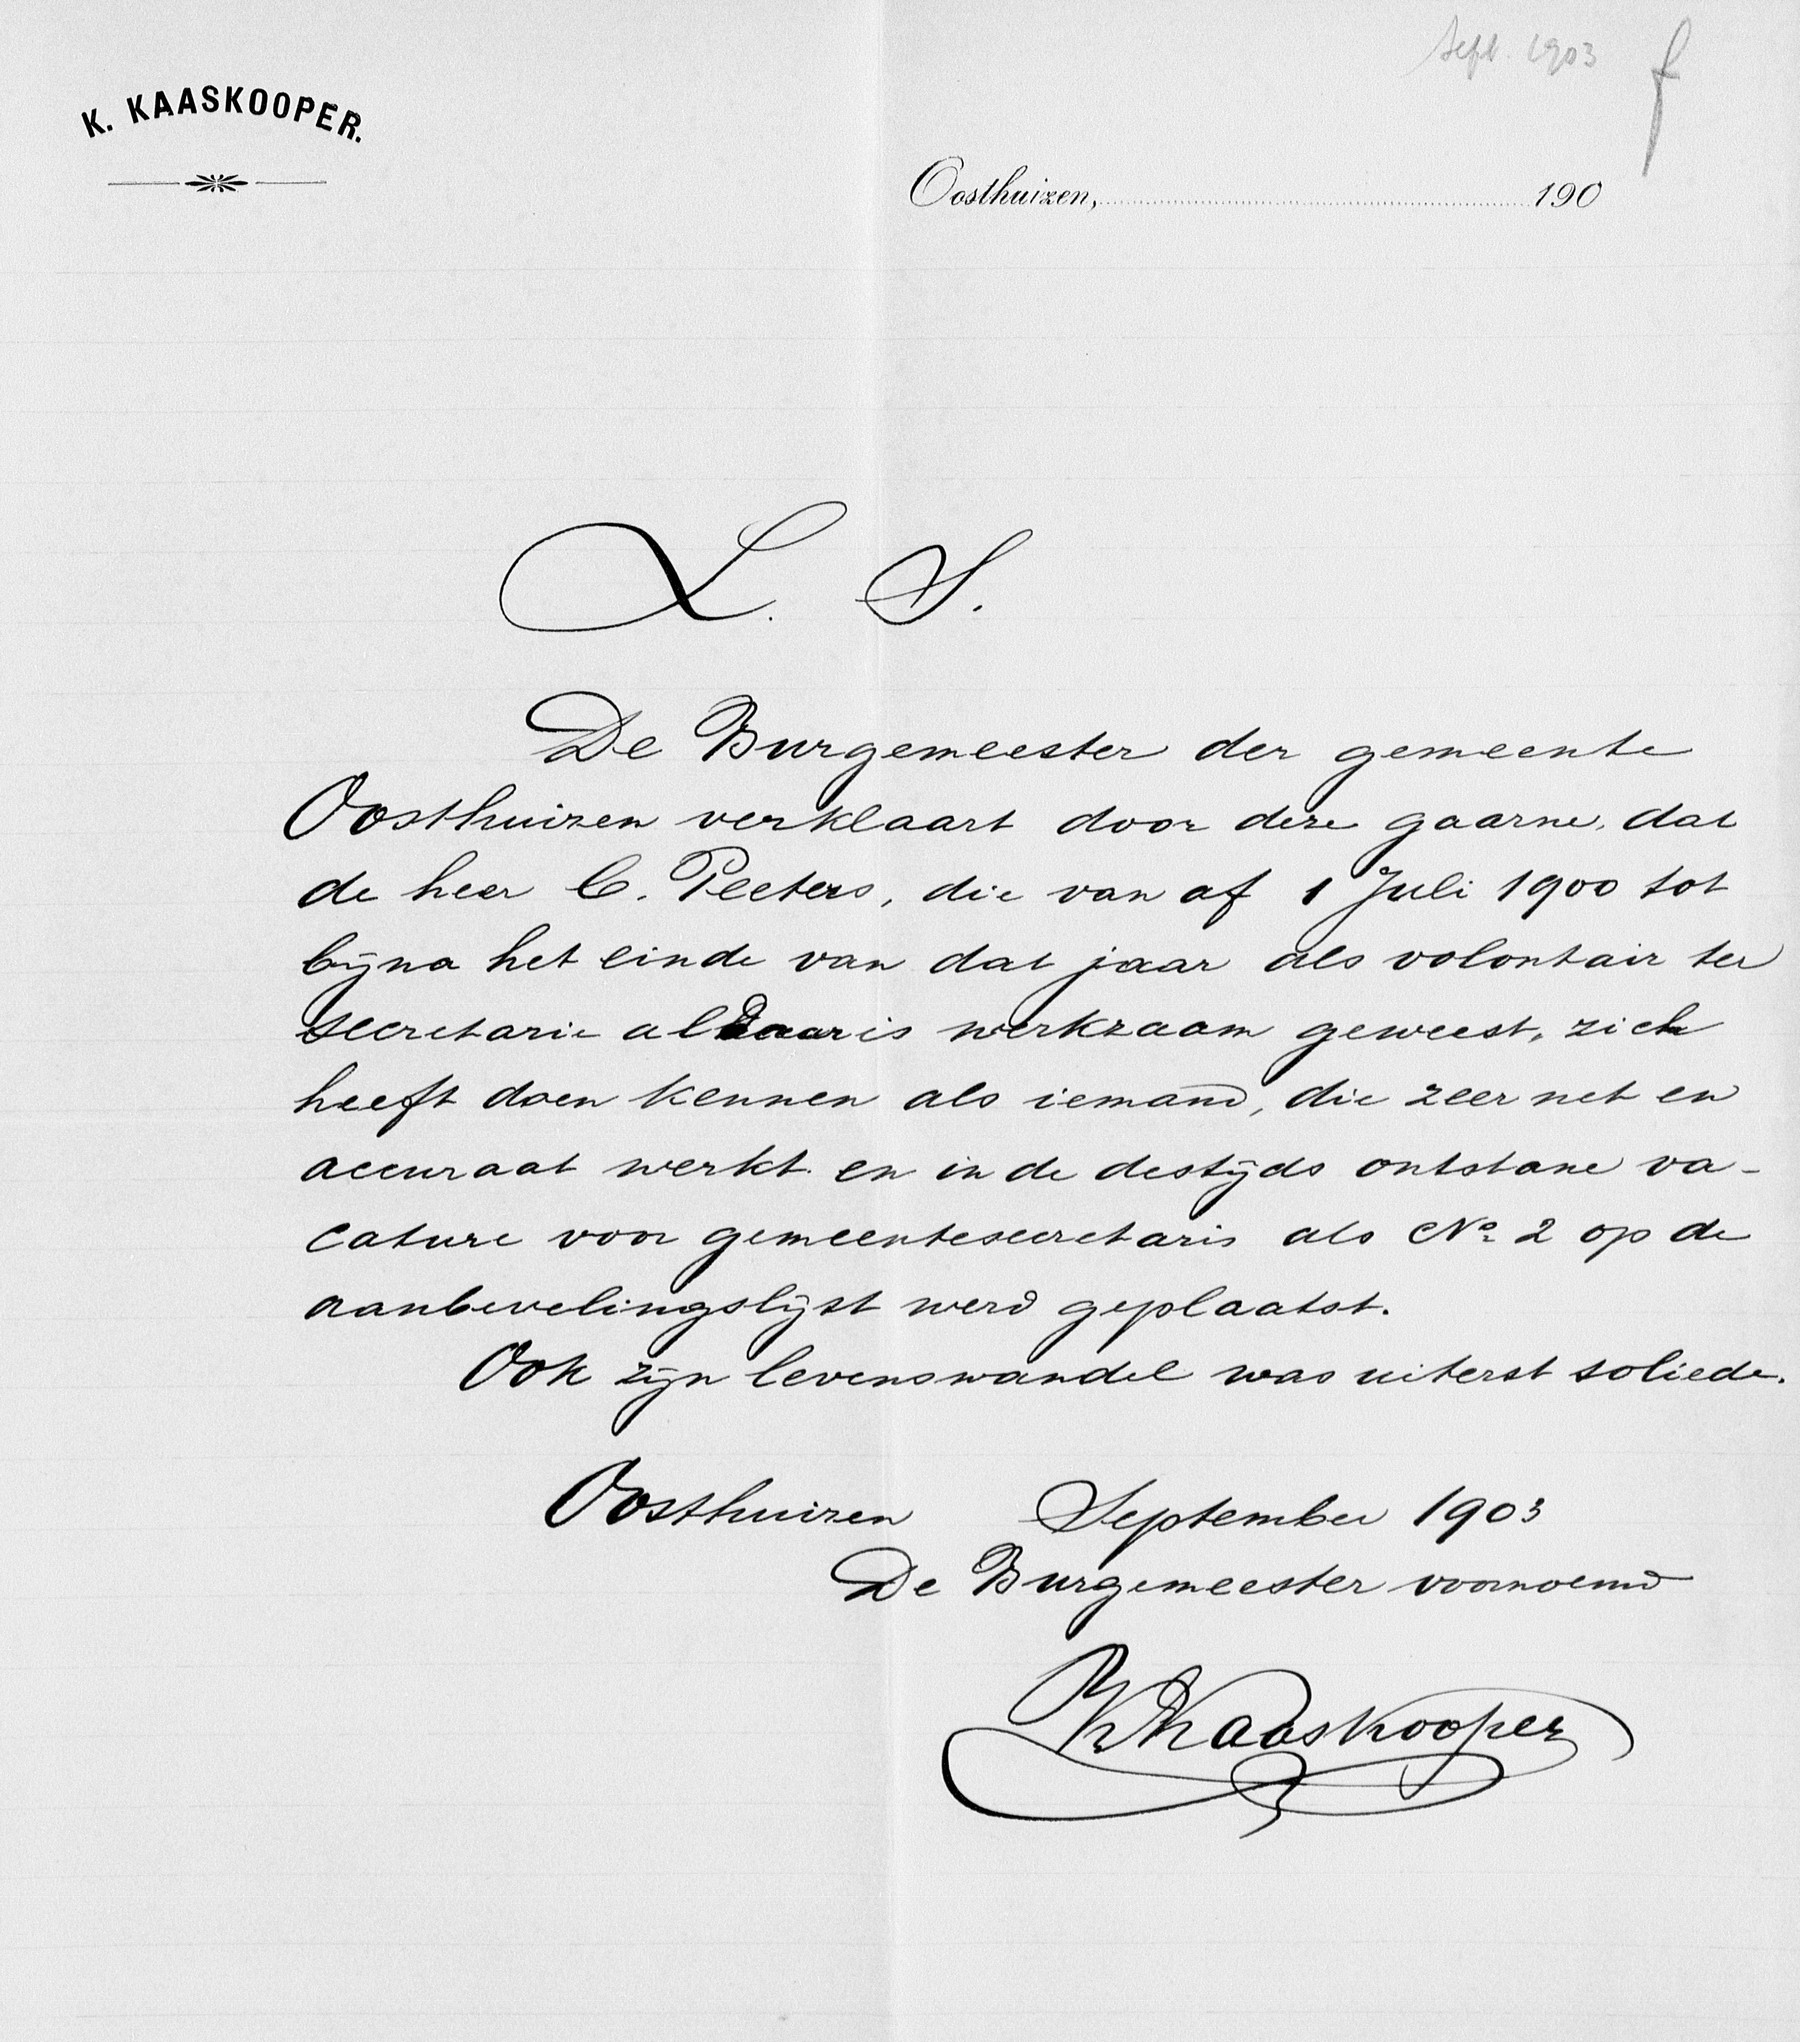 Sept. 1903
f
K. KAASKOOPER.
Oosthuizen, 190
L. S.
De Burgemeester der gemeente
Oosthuizen verklaart door deze gaarne, dat
de heer C. Peeters, die van af 1 Juli 1900 tot
bijna het einde van dat jaar als volontair ter
secretarie aldaar is werkzaam geweest, zich
heeft doen kennen als iemand, die zeer net en
accuraat werkt en in de destijds ontstane va-
cature voor gemeentesecretaris als No 2 op de
aanbevelingslijst werd geplaatst.
Ook zijn levenswandel was uiterst soliede.
Oosthuizen September 1903
De Burgemeester voornoemd
K Kaaskooper